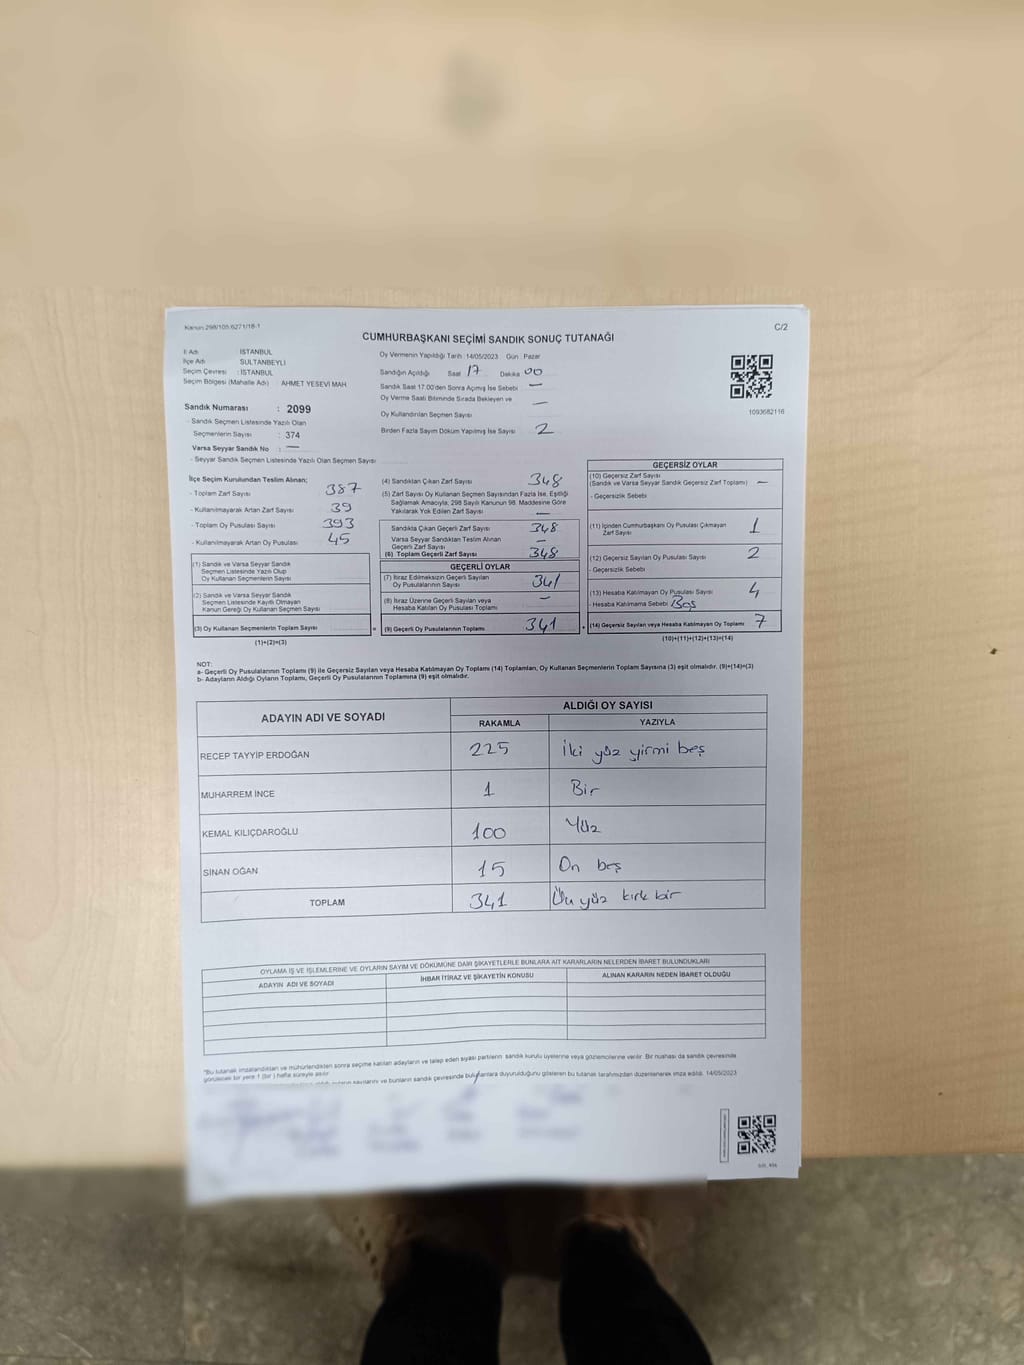 Kanun 298/105 6271/18-1
C/2
CUMHURBAŞKANI SEÇİMİ SANDIK SONUÇ TUTANAĞI
İl Adı İSTANBUL
İlçe Adı SULTANBEYLİ
Seçim Çevresi : İSTANBUL
Seçim Bölgesi (Mahalle Adı) : AHMET YESEVİ MAH
Sandık Numarası : 2099
- Sandık Seçmen Listesinde Yazılı Olan
Seçmenlerin Sayısı : 374
Varsa Seyyar Sandık No : —
- Seyyar Sandık Seçmen Listesinde Yazılı Olan Seçmen Sayısı
Oy Vermenin Yapıldığı Tarih : 14/05/2023 Gün : Pazar
Sandığın Açıldığı Saat 17 Dakika 00
Sandık Saat 17.00'den Sonra Açımış İse Sebebi —
Oy Verme Saati Bitiminde Sırada Bekleyen ve —
Oy Kullandırılan Seçmen Sayısı
Birden Fazla Sayım Döküm Yapılmış İse Sayısı 2
1093682116
İlçe Seçim Kurulundan Teslim Alınan;
- Toplam Zarf Sayısı 387
- Kullanılmayarak Artan Zarf Sayısı 39
- Toplam Oy Pusulası Sayısı 393
- Kullanılmayarak Artan Oy Pusulası 45
(1) Sandık ve Varsa Seyyar Sandık
Seçmen Listesinde Yazılı Olup
Oy Kullanan Seçmenlerin Sayısı
(2) Sandık ve Varsa Seyyar Sandık
Seçmen Listesinde Kayıtlı Olmayan
Kanun Gereği Oy Kullanan Seçmen Sayısı
(3) Oy Kullanan Seçmenlerin Toplam Sayısı =
(1)+(2)=(3)
(4) Sandıktan Çıkan Zarf Sayısı 348
(5) Zarf Sayısı Oy Kullanan Seçmen Sayısından Fazla İse, Eşitliği
Sağlamak Amacıyla; 298 Sayılı Kanunun 98. Maddesine Göre
Yakılarak Yok Edilen Zarf Sayısı —
Sandıkta Çıkan Geçerli Zarf Sayısı 348
Varsa Seyyar Sandıktan Teslim Alınan
Geçerli Zarf Sayısı —
(6) Toplam Geçerli Zarf Sayısı 348
GEÇERLİ OYLAR
(7) İtiraz Edilmeksizin Geçerli Sayılan
Oy Pusulalarının Sayısı 341
(8) İtiraz Üzerine Geçerli Sayılan veya
Hesaba Katılan Oy Pusulası Toplamı —
(9) Geçerli Oy Pusulalarının Toplamı 341 +
GEÇERSİZ OYLAR
(10) Geçersiz Zarf Sayısı
(Sandık ve Varsa Seyyar Sandık Geçersiz Zarf Toplamı) —
- Geçersizlik Sebebi
(11) İçinden Cumhurbaşkanı Oy Pusulası Çıkmayan
Zarf Sayısı 1
(12) Geçersiz Sayılan Oy Pusulası Sayısı 2
- Geçersizlik Sebebi
(13) Hesaba Katılmayan Oy Pusulası Sayısı 4
- Hesaba Katılmama Sebebi Boş
(14) Geçersiz Sayılan veya Hesaba Katılmayan Oy Toplamı 7
(10)+(11)+(12)+(13)=(14)
NOT:
a- Geçerli Oy Pusulalarının Toplamı (9) ile Geçersiz Sayılan veya Hesaba Katılmayan Oy Toplamı (14) Toplamları, Oy Kullanan Seçmenlerin Toplam Sayısına (3) eşit olmalıdır. (9)+(14)=(3)
b- Adayların Aldığı Oyların Toplamı, Geçerli Oy Pusulalarının Toplamına (9) eşit olmalıdır.
ADAYIN ADI VE SOYADI ALDIĞI OY SAYISI
RAKAMLA YAZIYLA
RECEP TAYYİP ERDOĞAN 225 İki yüz yirmi beş
MUHARREM İNCE 1 Bir
KEMAL KILIÇDAROĞLU 100 Yüz
SİNAN OĞAN 15 On beş
TOPLAM 341 Üç yüz kırk bir
OYLAMA İŞ VE İŞLEMLERİNE VE OYLARIN SAYIM VE DÖKÜMÜNE DAİR ŞİKAYETLERLE BUNLARA AİT KARARLARIN NELERDEN İBARET BULUNDUKLARI
ADAYIN ADI VE SOYADI İHBAR İTİRAZ VE ŞİKAYETİN KONUSU ALINAN KARARIN NEDEN İBARET OLDUĞU
"Bu tutanak imzalandıktan ve mühürlendikten sonra seçime katılan adayların ve talep eden siyasi partilerin sandık kurulu üyelerine veya gözlemcilerine verilir. Bir nüshası da sandık çevresinde
görülecek bir yere 1 (bir) hafta süreyle asılır.
sayılarını ve bunların sandık çevresinde bulunanlara duyurulduğunu gösteren bu tutanak tarafımızdan düzenlenerek imza edildi. 14/05/2023